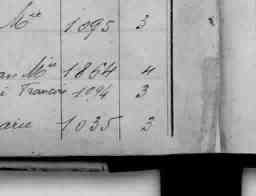 Mie 1095 3
an Mie 1864 4
i Francois 1094 3
arie 1035 3